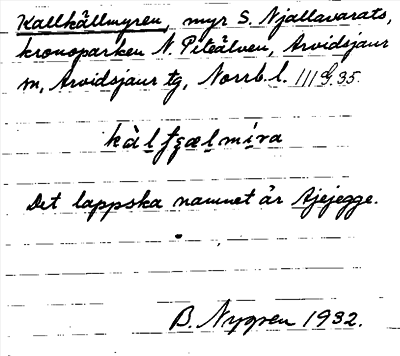 Kallkällmyren, myr S. Njallavarats,
kronoparken N. Piteälven, Arvidsjaur
sn, Arvidsjaur tg, Norrb. l. 111 9.35
kàlʃɕælmíra
Det lappska namnet är Ajejegge.
B. Nygren 1932.